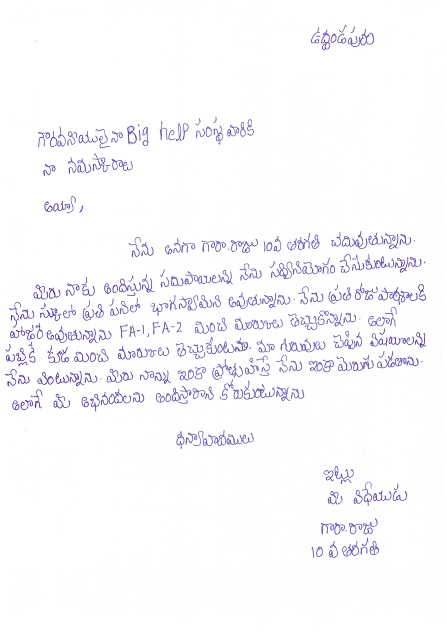 ఉద్దండపురం
గౌరవనీయులైనా Big help సంస్థ వారికి
నా నమస్కారాలు
అయ్యా,
నేను అనగా గారా.రాజు 10వ తరగతి చదువుతున్నాను.
మీరు నాకు అందిస్తున్న సదుపాయాలన్ని నేను సద్వినియోగం చేసుకుంటున్నాను.
నేను స్కులో ప్రతి పనిలో భాగస్వామిని అవుతున్నాను. నేను ప్రతి రోజు పాఠశాలకి
హాజరి అవుతున్నాను FA-1, FA-2 మంచి మారుకులు తెచ్చుకొన్నాను. అలాగే
పబ్లికే కుడ మంచి మారుకులు తెచ్చుకుంటును. మా గురువులు చెప్పిన విషయాలన్ని
నేను వింటున్నాను. మీరు నాన్ను ఇంకా ప్రోత్సహిస్తే నేను ఇంకా మెరుగు పడతాను.
అలాగే మీ అభినందలను అందిస్తారాని కోరుకుంటున్నాను
ధన్యావాదములు
ఇట్లు
మీ విధేయుడు
గారా.రాజు
10 వ తరగతి